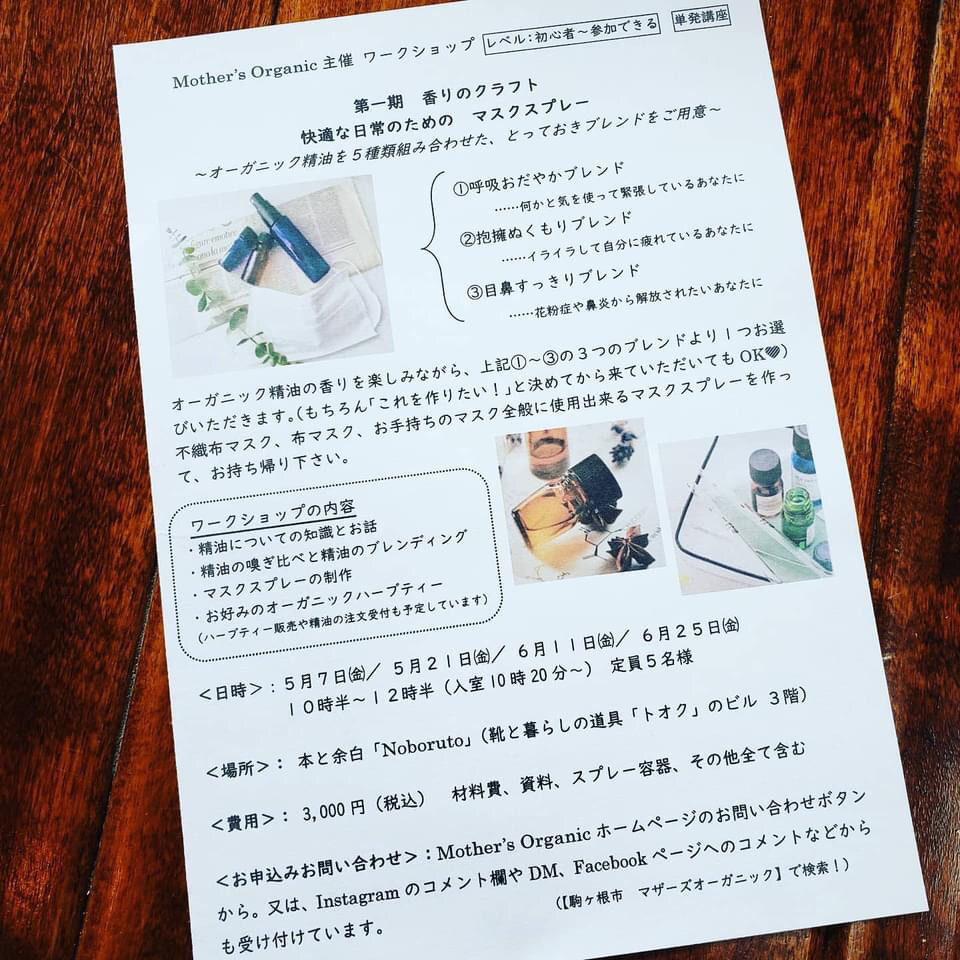 Mother's Organic 主催 ワークショップ レベル:初心者～参加できる 単発講座
第一期 香りのクラフト
快適な日常のための マスクスプレー
～オーガニック精油を5種類組み合わせた、とっておきブレンドをご用意～
①呼吸おだやかブレンド
……何かと気を使って緊張しているあなたに
②抱擁ぬくもりブレンド
……イライラして自分に疲れているあなたに
③目鼻すっきりブレンド
……花粉症や鼻炎から解放されたいあなたに
オーガニック精油の香りを楽しみながら、上記①～③の3つのブレンドより1つお選
びいただきます。(もちろん「これを作りたい！」と決めてから来ていただいてもOK♥)
不織布マスク、布マスク、お手持ちのマスク全般に使用出来るマスクスプレーを作っ
て、お持ち帰り下さい。
ワークショップの内容
・精油についての知識とお話
・精油の嗅ぎ比べと精油のブレンディング
・マスクスプレーの制作
・お好みのオーガニックハーブティー
(ハーブティー販売や精油の注文受付も予定しています)
＜日時＞：5月7日㈮／ 5月21日㈮／ 6月11日㈮／ 6月25日㈮
10時半～12時半（入室10時20分～） 定員5名様
＜場所＞： 本と余白「Noboruto」（靴と暮らしの道具「トオク」のビル 3階）
＜費用＞： 3,000円（税込） 材料費、資料、スプレー容器、その他全て含む
＜お申込みお問い合わせ＞：Mother's Organic ホームページのお問い合わせボタン
から。又は、Instagram のコメント欄や DM、Facebook ページへのコメントなどから
も受け付けています。 （【駒ヶ根市 マザーズオーガニック】で検索！）